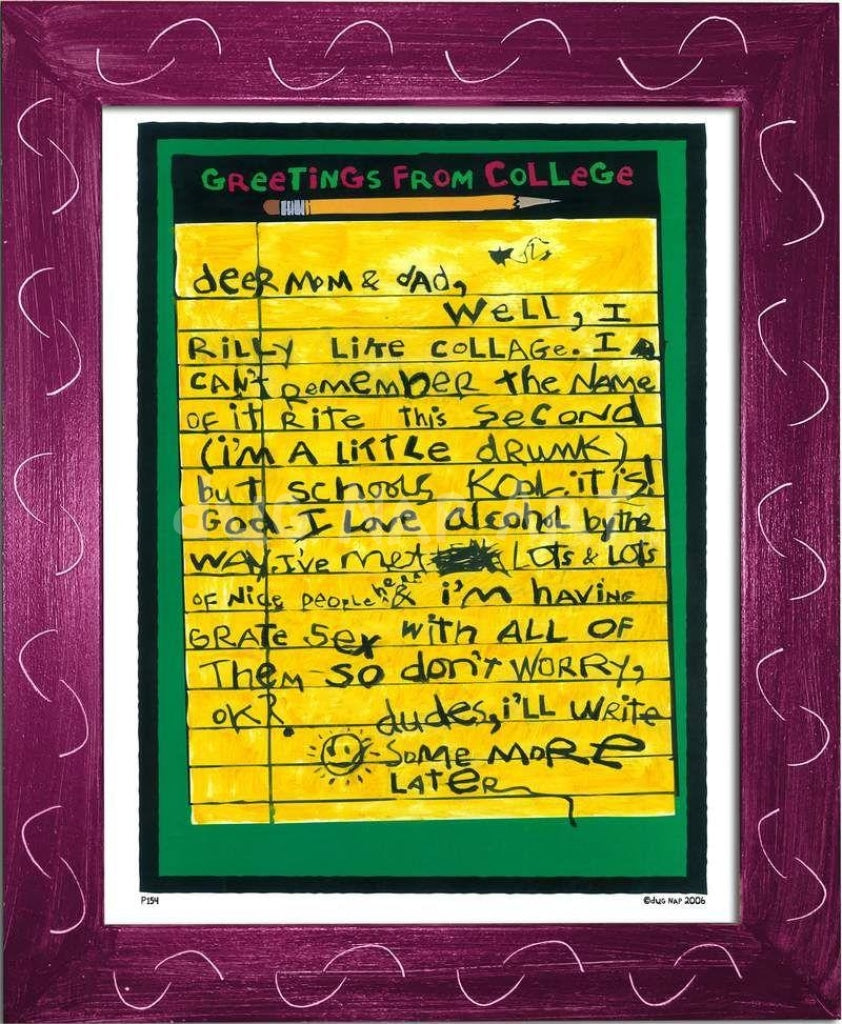 GReeTiNGS FROM COLLeGe
deeR MOM & dAd,
WeLL, I
RiLLY LiKe COLLAGe. I
CAN'T ReMeMbeR the NAMe
OF iT RiTe This SeCOND
(i'M A LiTTLe dRUNK)
but schools KOOL. iT iS!
God-I Love alcohol by the
WAY. I've met LOTS & LOTS
OF Nice PeOPLe here & i'm having
GRATe Sex with ALL OF
TheM so don't WORRY,
OK? dudes, i'LL WRiTe
SOMe MORe
LATeR
P154
©dug NAP 2006